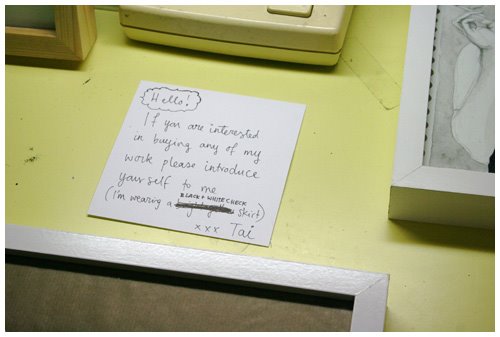 Hello!
If you are interested
in buying any of my
work please introduce
yourself to me
BLACK + WHITE CHECK
(I'm wearing a skirt)
xxx Tai